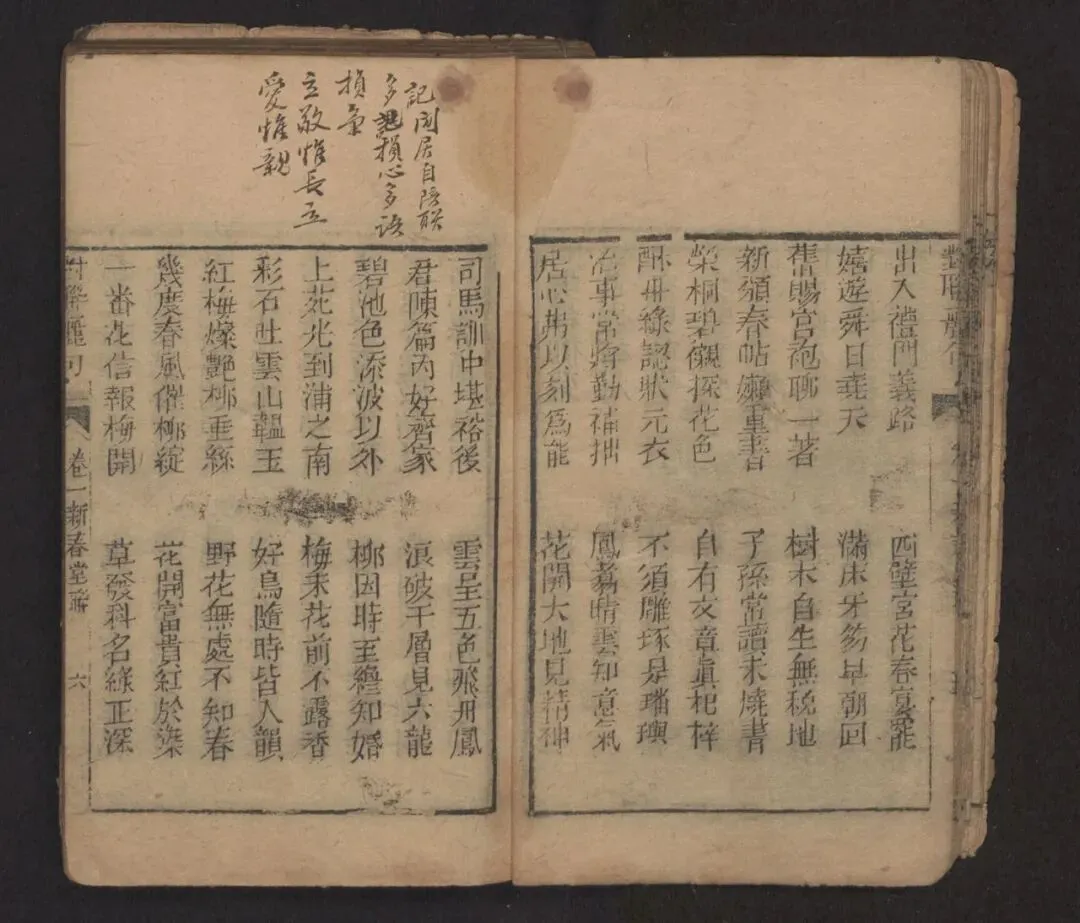 對聯麗句
出入禮門義路
嬉遊舜日堯天
舊賜宮袍聊一著
新頒春帖嬾重書
榮桐碧襯探花色
綠認狀元衣
治事常將勤補拙
居心弗以刻為能
四壁宮花春宴罷
滿床牙笏早朝回
樹木自生無稅地
子孫常讀未燒書
自有文章眞杞梓
不須雕琢是璠璵
鳳翥晴雲知意氣
花開大地見精神
記閒居自陪聯
多思損心多語
損氣
立敬惟長立
愛惟親
司馬訓中堪裕後
君陳篇內好齊家
碧池色添波以外
上苑光到浦之南
彩石吐雲山韞玉
紅梅燦艷柳垂絲
幾度春風催柳綻
一番花信報梅開
雲呈五色飛丹鳳
浪破千層見六龍
柳因時至纔知婚
梅未花前不露香
好鳥隨時皆人韻
野花無處不知春
花開富貴紅於染
草發科名綠正深
對聯麗句 卷一新春堂聯 六